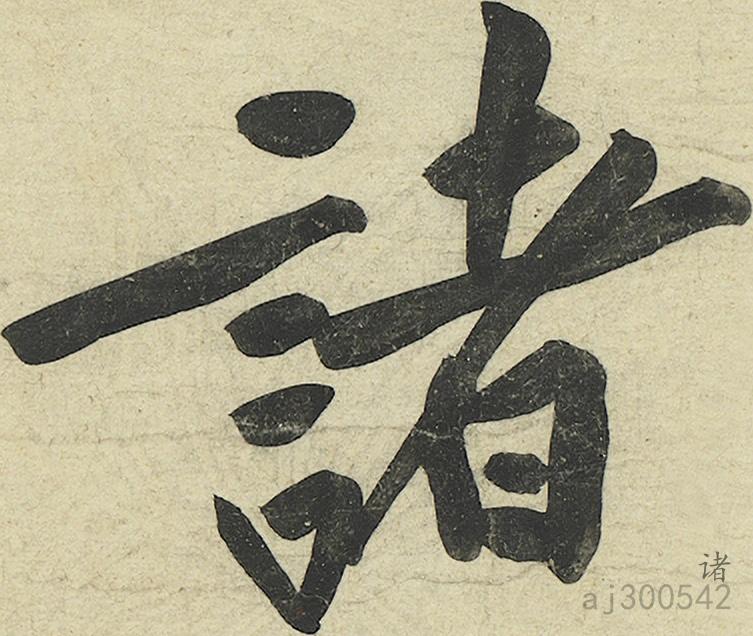 諸
诸
aj300542